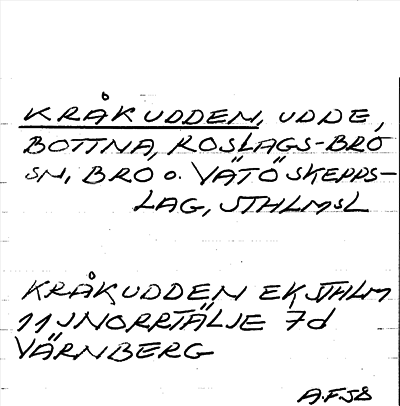 KRÅKUDDEN, UDDE,
BOTTNA, ROSLAGS-BRO
SN, BRO o. VÄTÖ SKEPPS-
LAG, STHLMSL
KRÅKUDDEN EK STHLM
11 J NORRTÄLJE 7d
VÄRNBERG
A.F.58